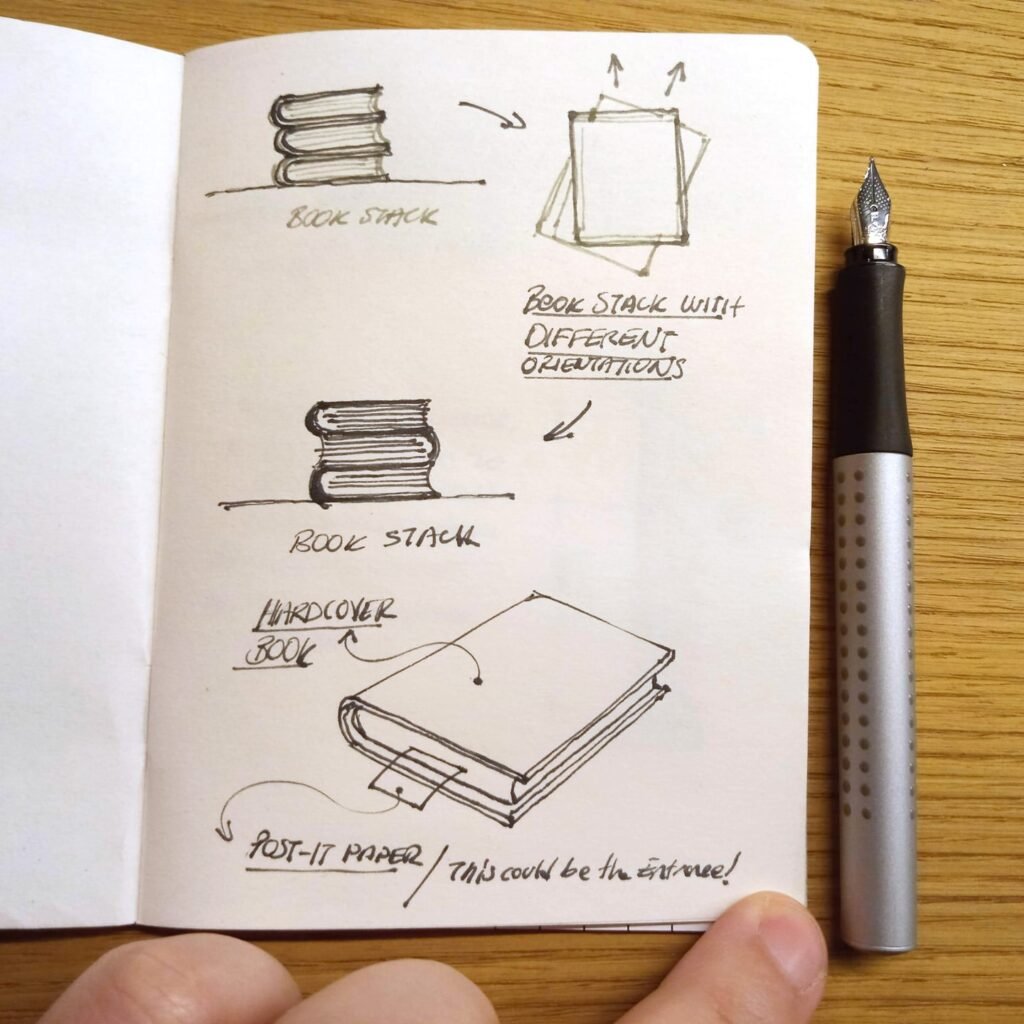 BOOK STACK
BOOK STACK WITH
DIFFERENT
ORIENTATIONS
BOOK STACK
HARDCOVER
BOOK
POST-IT PAPER / This could be the Entrance!